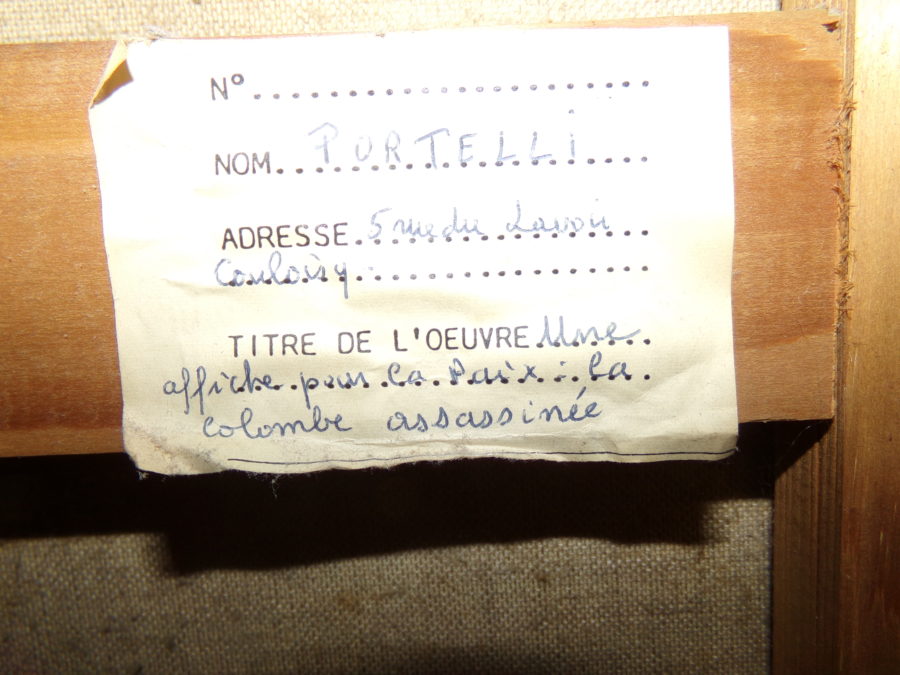 N°........................
NOM..PORTELLI....
ADRESSE.5 rue du Lavoir
Couloisy..................
TITRE DE L'OEUVRE Une..
affiche pour la Paix : la.
colombe assassinée